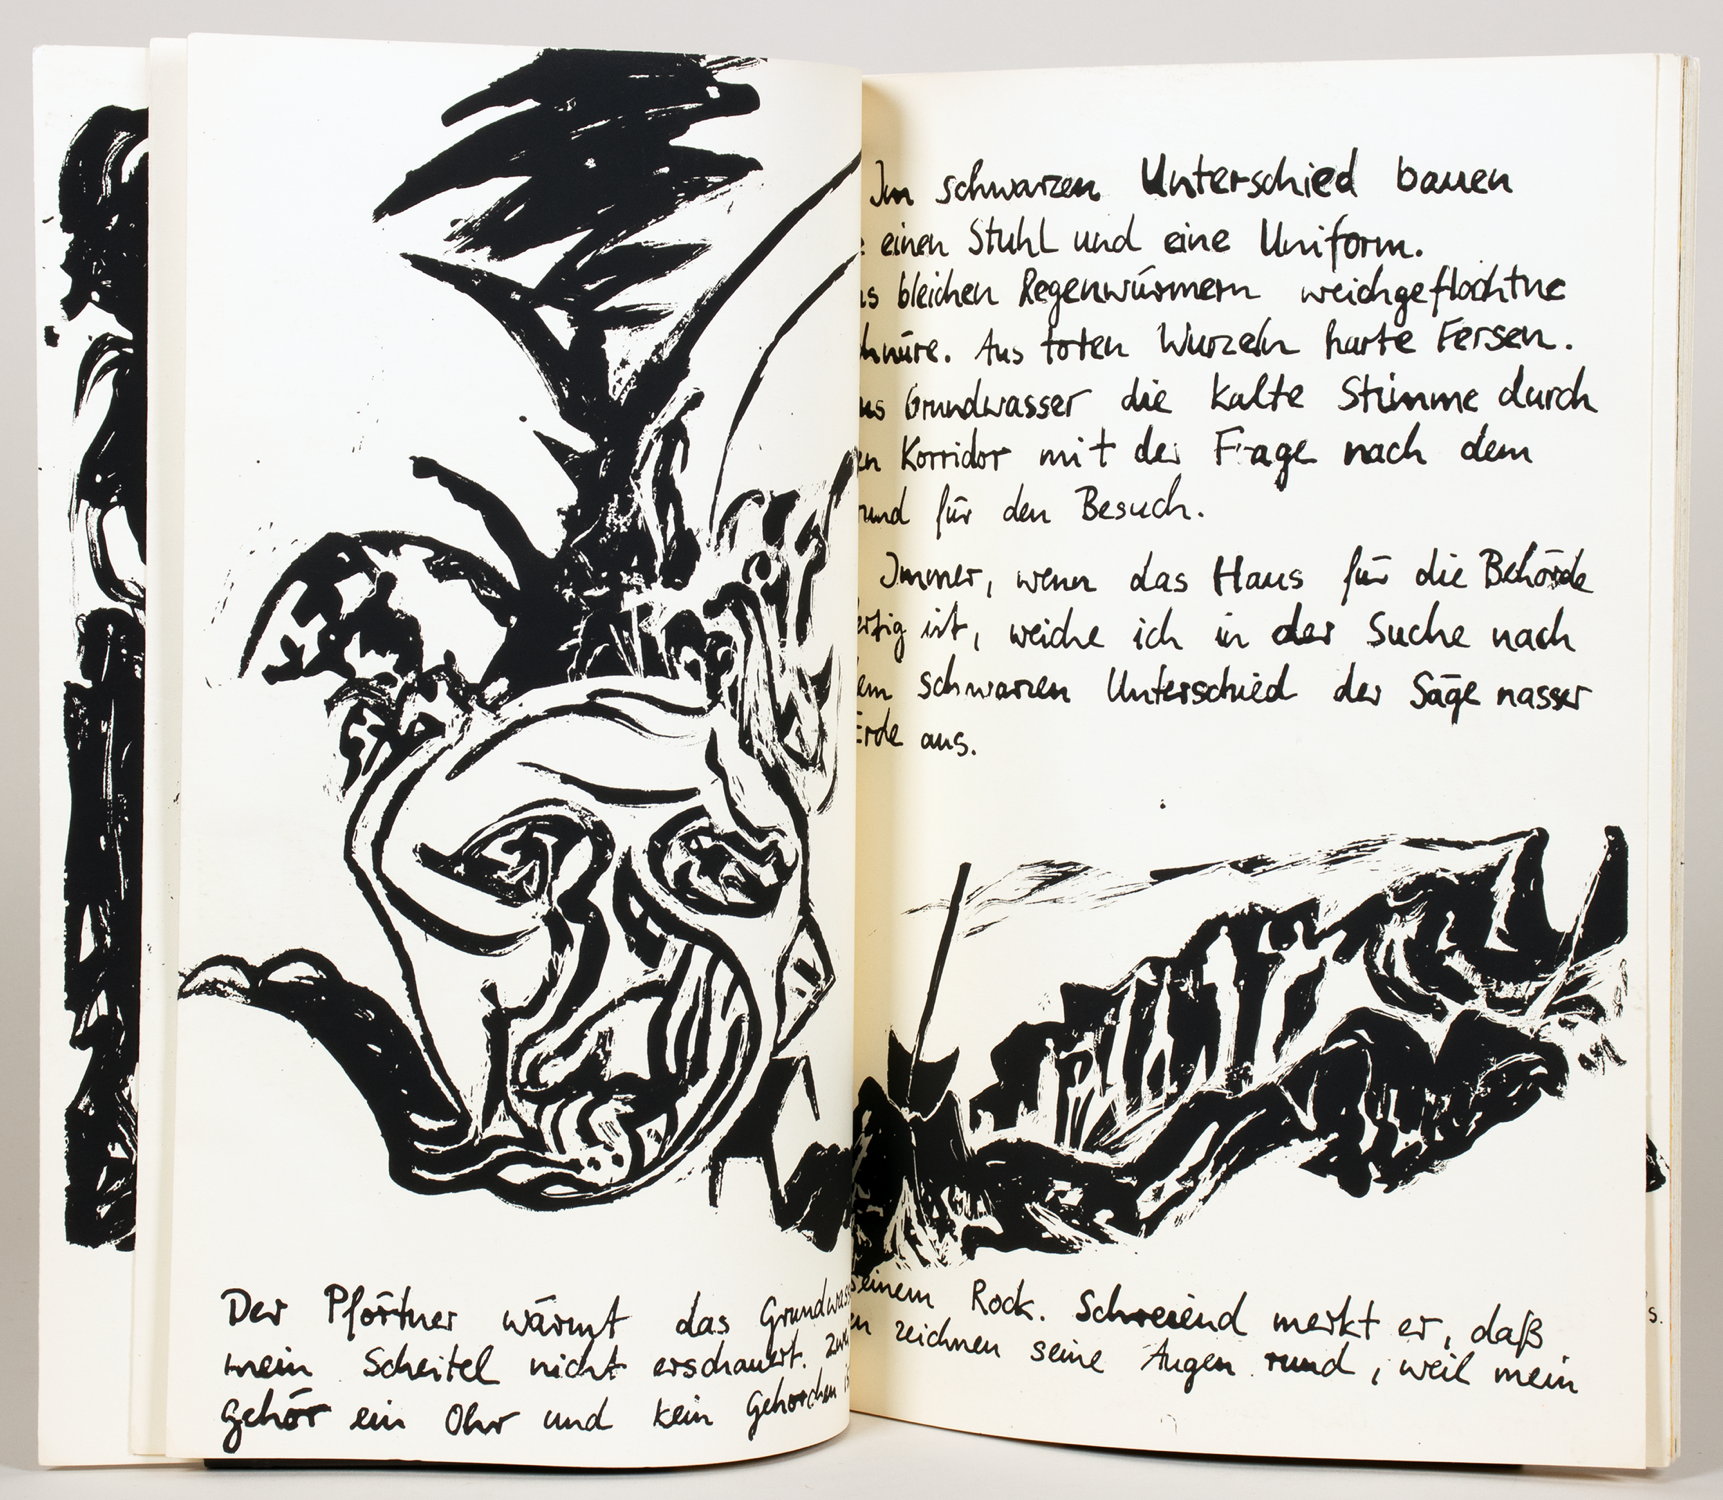 Der Pförtner wärmt das Grundwass
mein Scheitel nicht erschauert. Zwei
gehör ein Ohr und kein Gehorchen is
Im schwarzen Unterschied bauen
e einen Stuhl und eine Uniform.
us bleichen Regenwürmern weichgeflochtne
chnüre. Aus toten Wurzeln harte Fersen.
us Grundwasser die kalte Stimme durch
en Korridor mit der Frage nach dem
rund für den Besuch.
Immer, wenn das Haus für die Behörde
ertig ist, weiche ich in der Suche nach
em schwarzen Unterschied der Säge nasser
Erde aus.
seinem Rock. Schreiend merkt er, daß
en zeichnen seine Augen rund, weil mein
s.